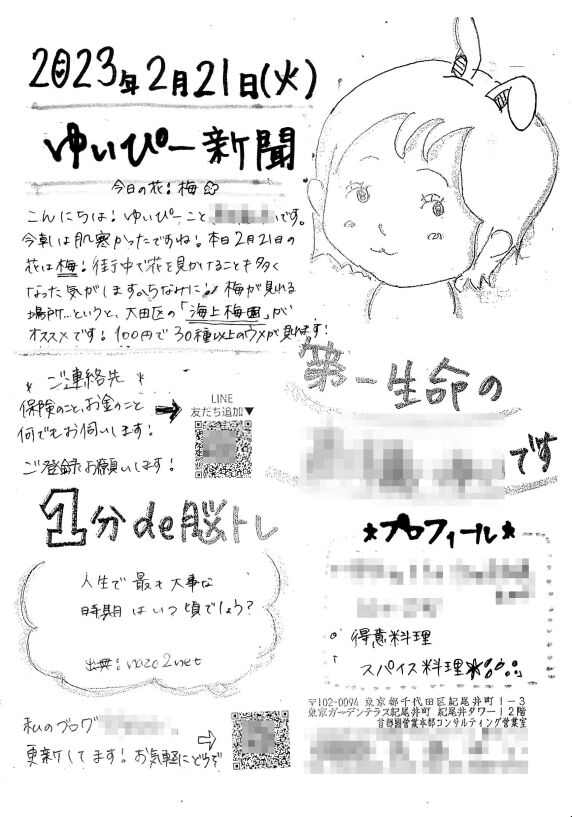 2023年2月21日(火)
ゆいぴー新聞
今日の花:梅
こんにちは!ゆいぴーこと です。
今朝は肌寒かったですね!本日2月21日の
花は梅!街中で花を見かけることも多く
なった気がします。ちなみに!梅が見れる
場所…というと、大田区の「海上梅園」が
オススメです!100円で30種以上のウメが見れます!
ご連絡先
保険のこと、お金のこと
何でもお伺いします!
ご登録お願いします!
LINE
友だち追加▼
第一生命の
です
1分de脳トレ
人生で最も大事な
時期はいつ頃でしょう?
出典:nazo2net
★プロフィール★
得意料理
スパイス料理
〒102-0094 東京都千代田区紀尾井町1-3
東京ガーデンテラス紀尾井町 紀尾井タワー12階
首都圏営業本部コンサルティング営業室
私のブログ
更新してます!お気軽にどうぞ